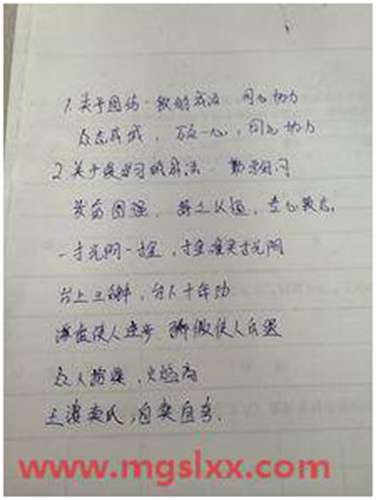 1. 关于团结一致的成语 同心协力
众志成城, 万众一心, 同心协力
2. 关于爱学习的成语 勤学好问
发奋图强, 持之以恒, 专心致志.
一寸光阴一寸金, 寸金难买寸光阴
台上三分钟, 台下十年功
谦虚使人进步 骄傲使人自满
众人拾柴, 火焰高
王婆卖瓜, 自卖自夸.
www.mgslxx.com